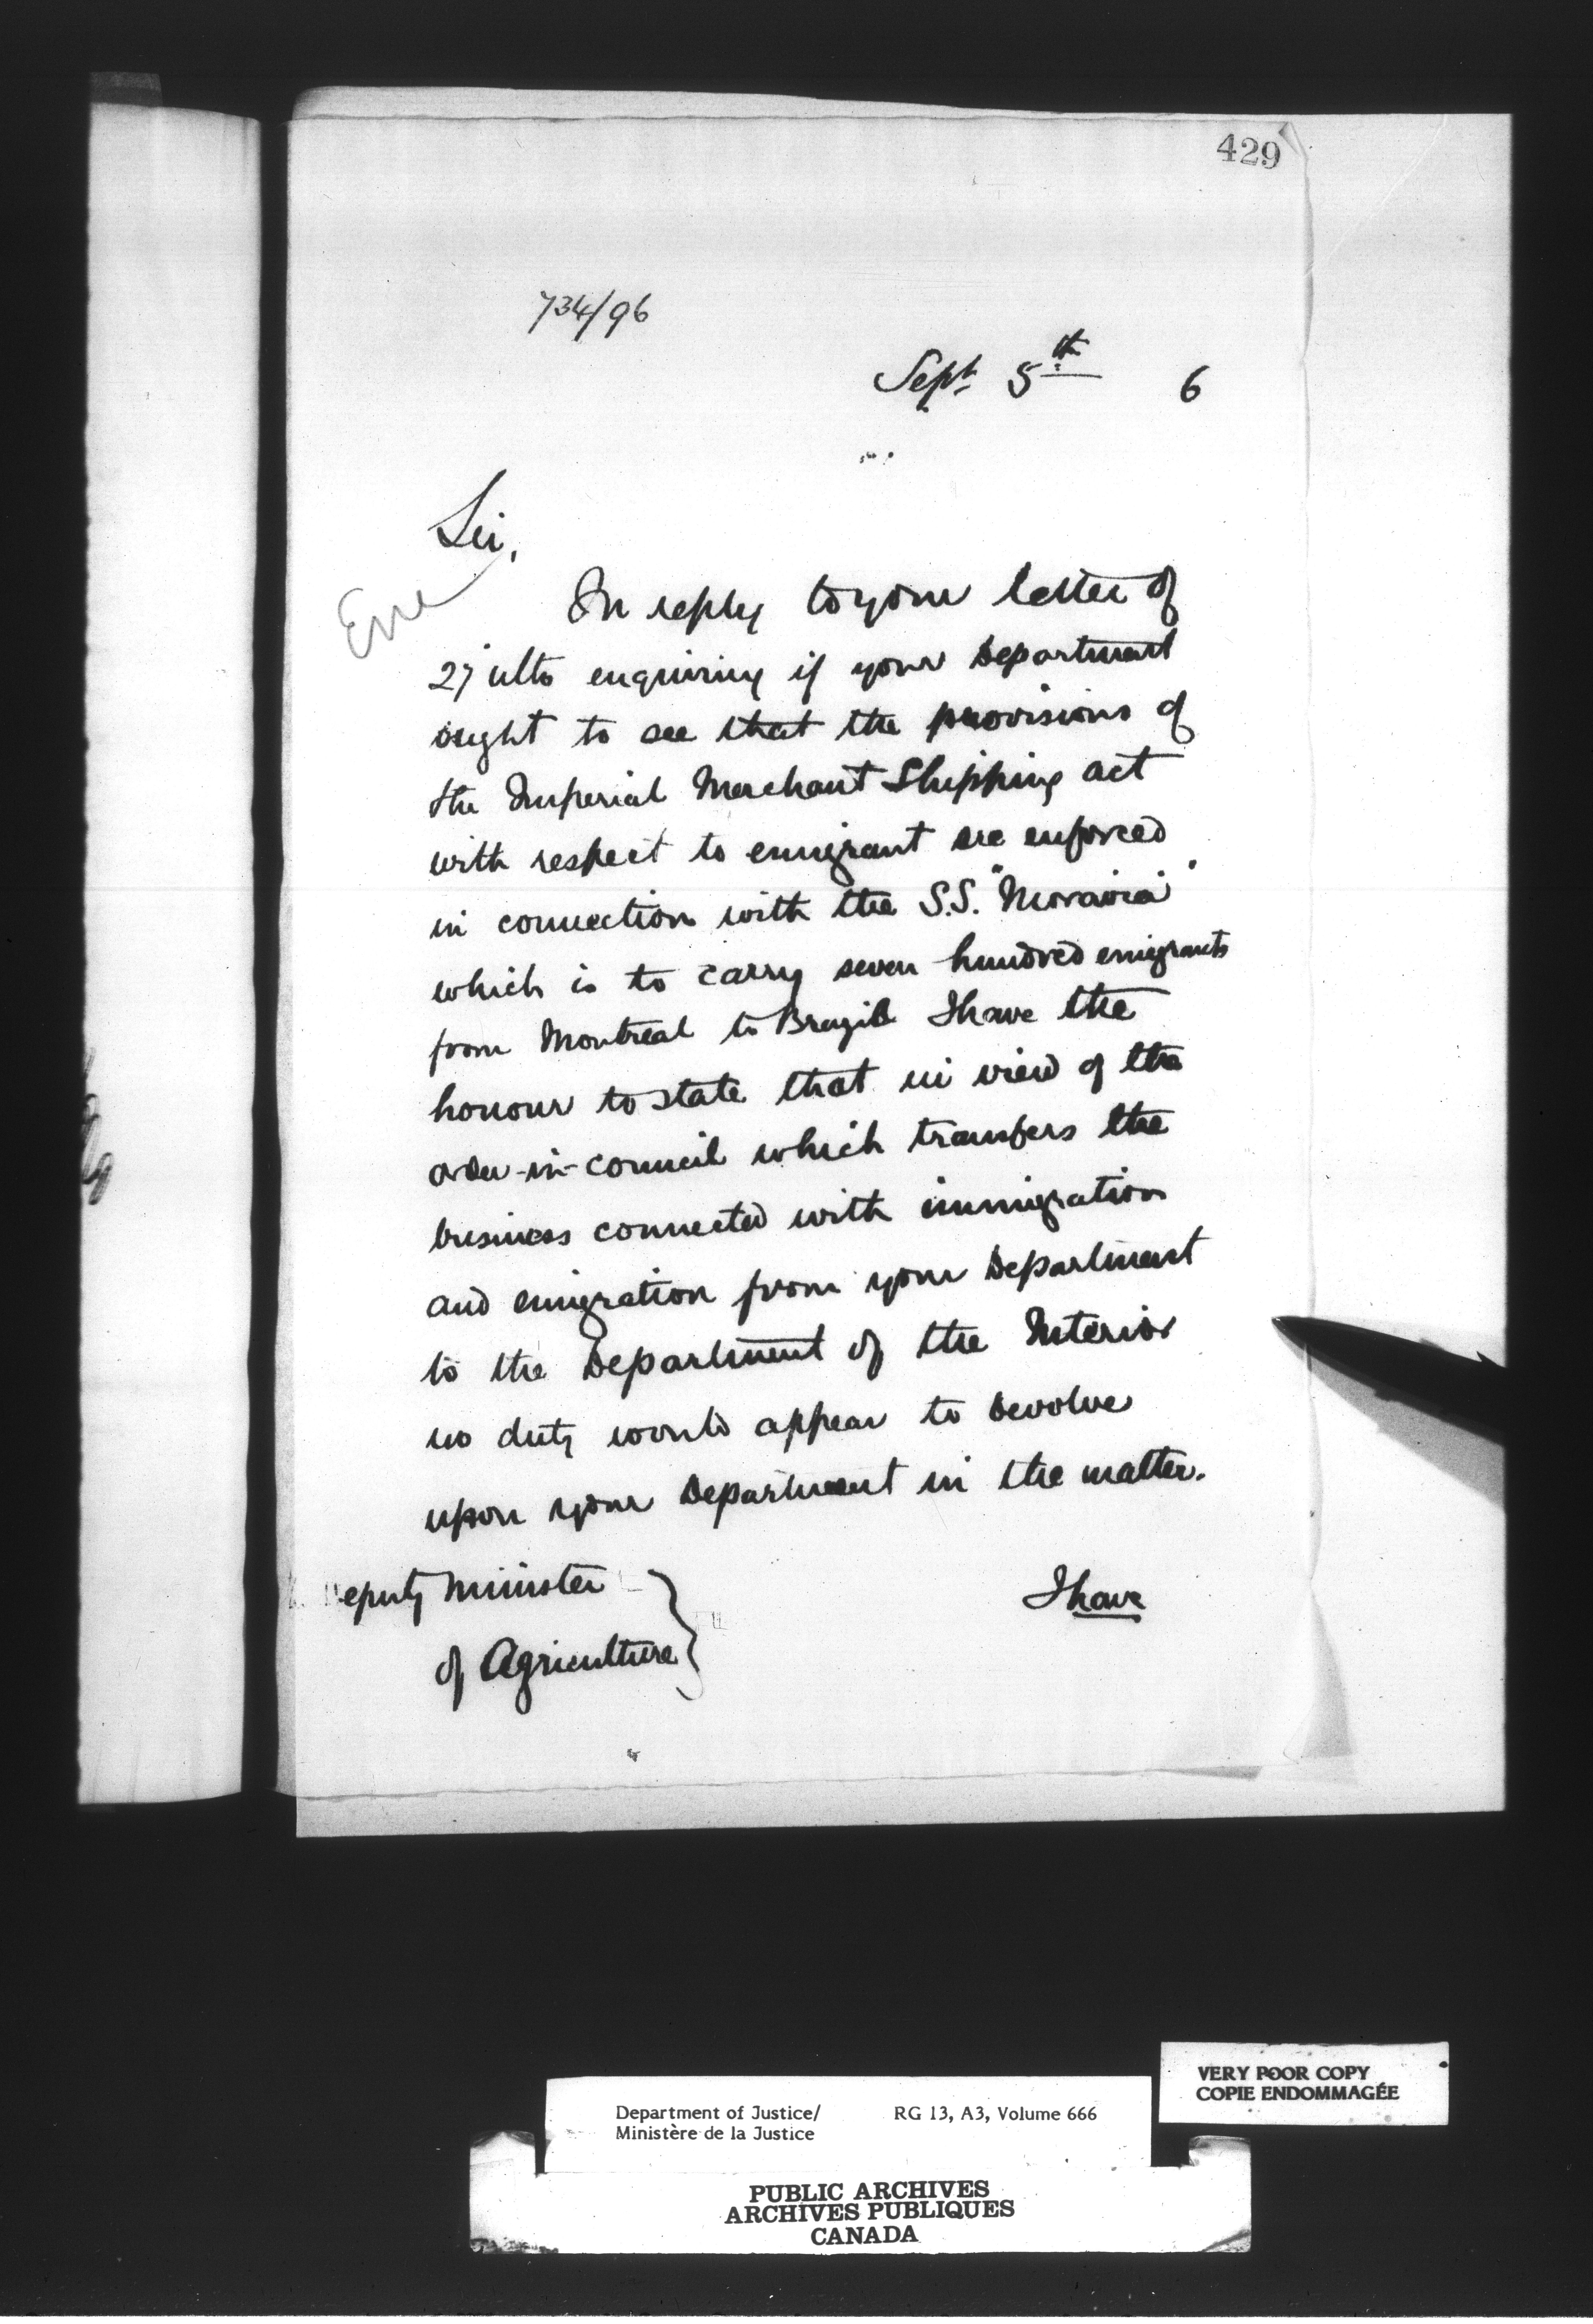 429
734/96
Sept. 5th 6
Sir,
In reply to your letter of
27 ulto enquiring if your Department
ought to see that the provisions of
the Imperial Merchant Shipping Act
with respect to emigrant are enforced
in connection with the S.S. "Moravia"
which is to carry seven hundred emigrants
from Montreal to Brazil I have the
honour to state that in view of the
order-in-council which transfers the
business connected with immigration
and emigration from your Department
to the Department of the Interior
no duty would appear to devolve
upon your Department in the matter.
I have
Deputy Minister
of Agriculture
VERY POOR COPY
COPIE ENDOMMAGÉE
Department of Justice/ RG 13, A3, Volume 666
Ministère de la Justice
PUBLIC ARCHIVES
ARCHIVES PUBLIQUES
CANADA